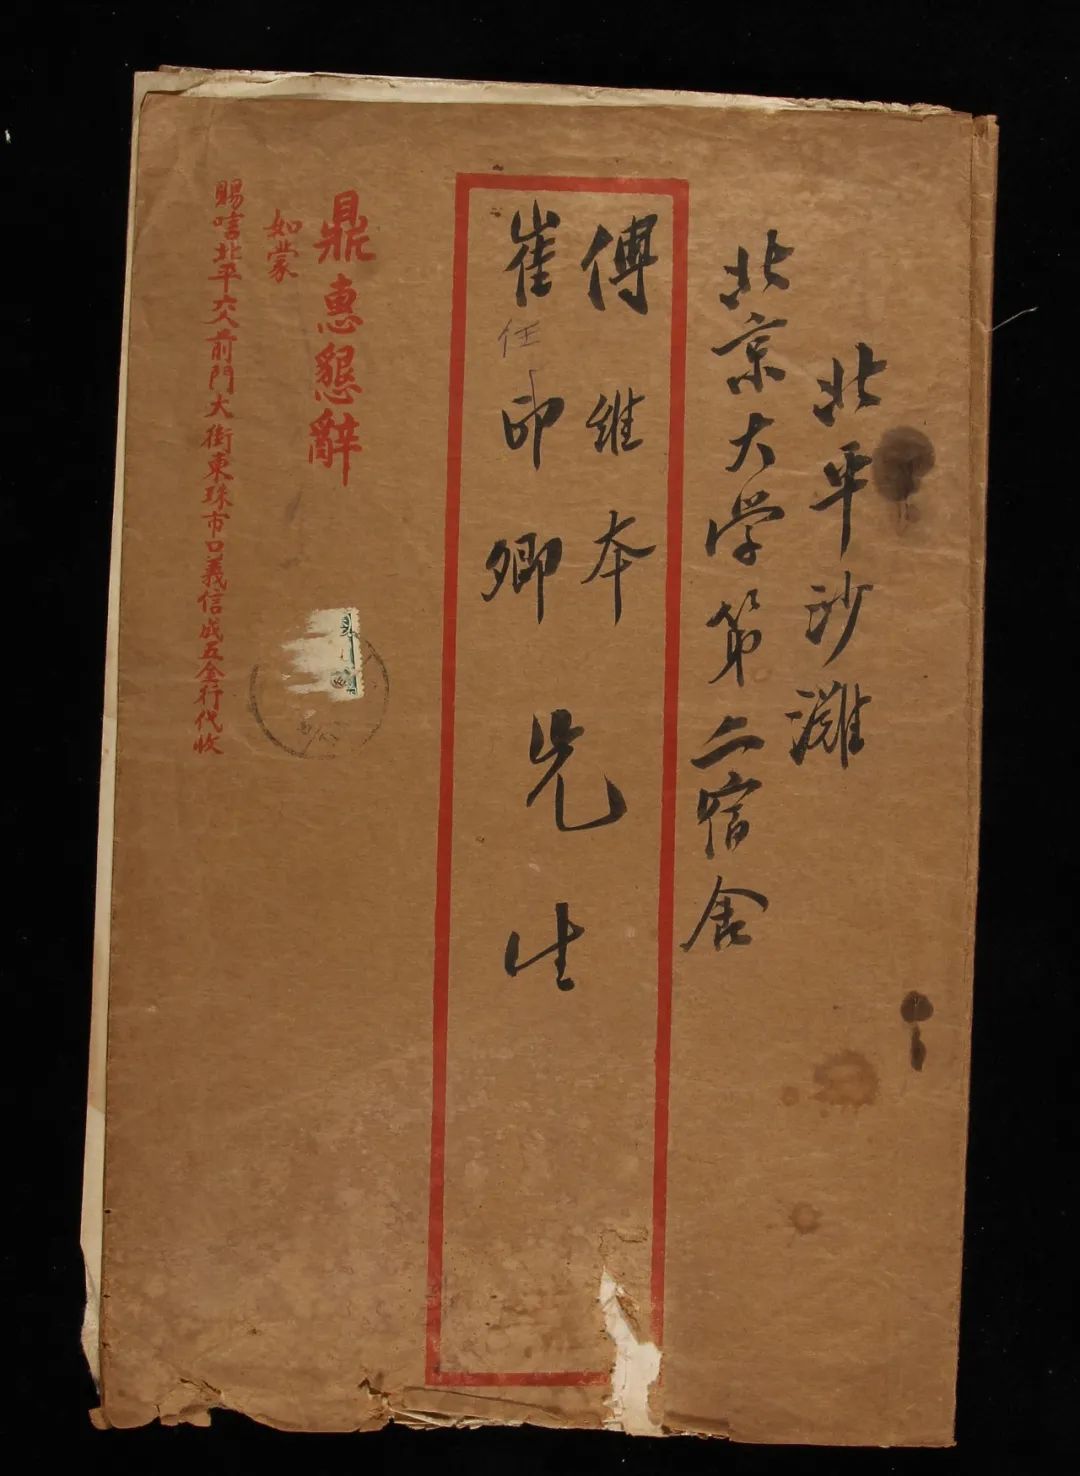 北平沙滩
北京大学第二宿舍
傅维本
崔印卿
任
先生
鼎惠懇辭
如蒙
賜唁北平前門大街東珠市口義信成五金行代收